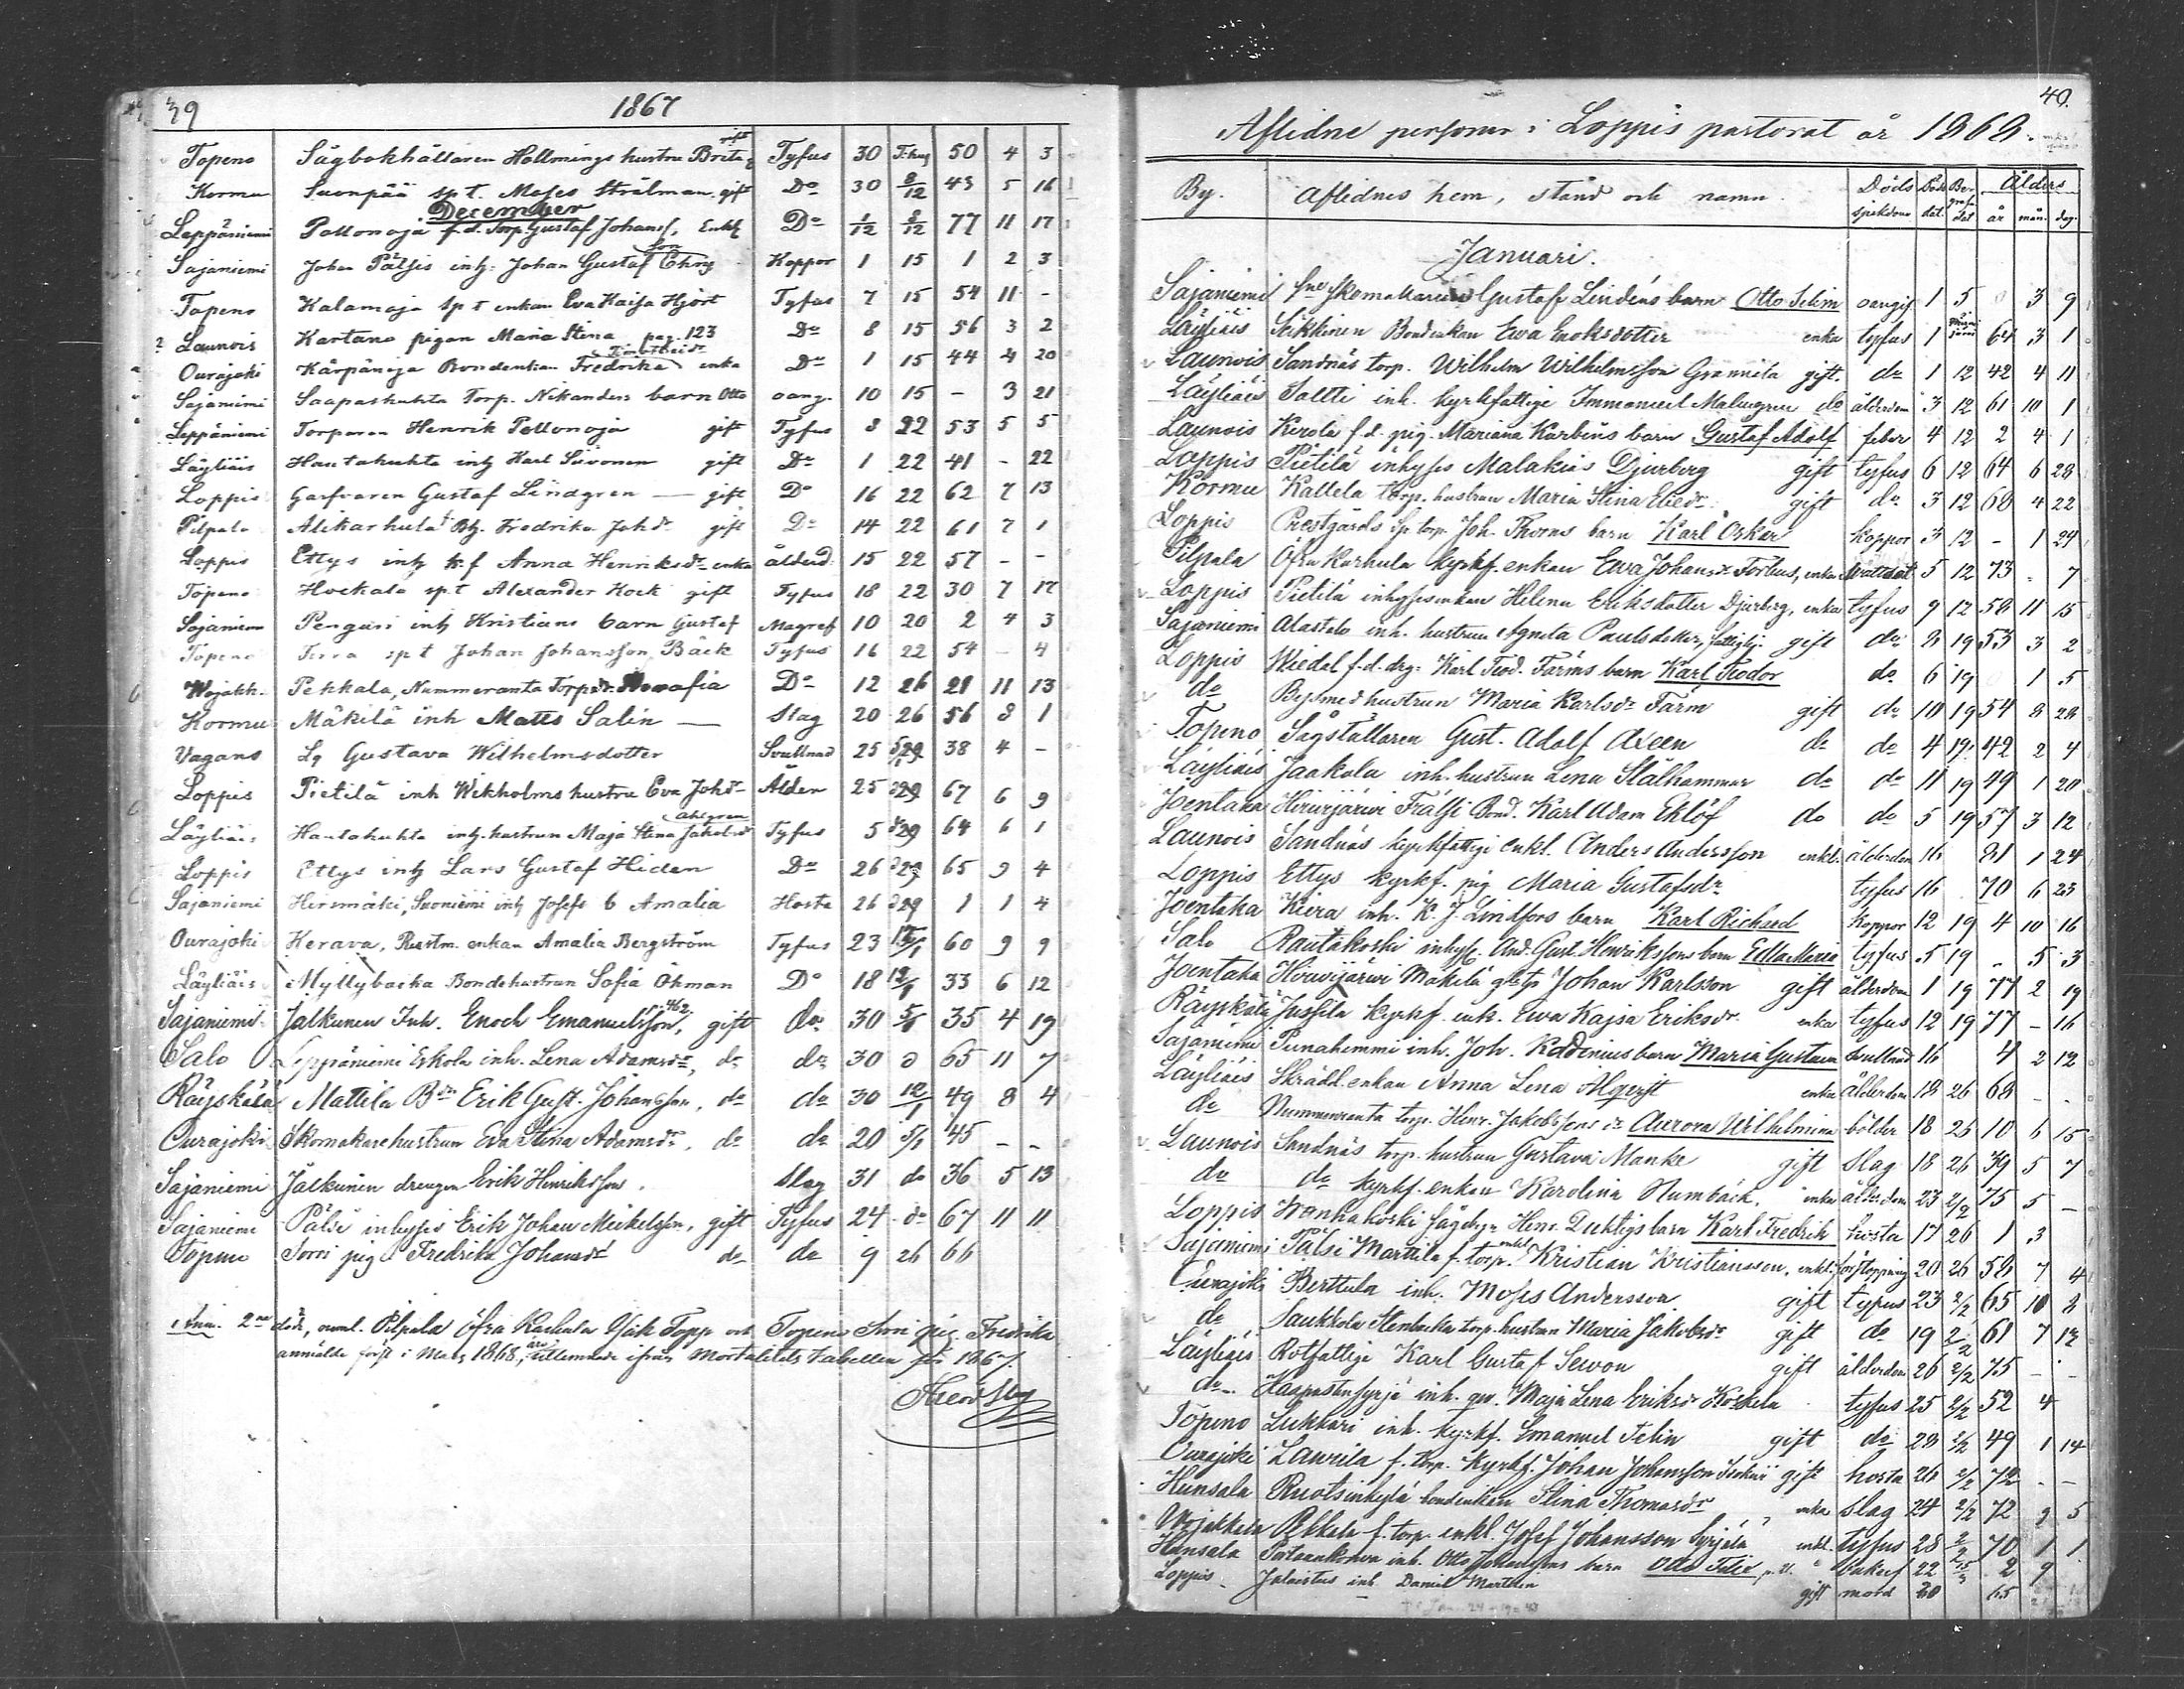 39
1867
Topeno Sågbokhållaren Hollmings hustru Brita gift Tyfus 30 50 4 3
Kormu Suonpää sp.t. Moses Strålman gift Do 30 8/12 43 5 16
December
Leppäniemi Pollonoja f.d. Torp. Gustaf Johanss, Enkl Do 1/12 8/12 77 11 17
Sajaniemi Johan Pälsis inh: Johan Gustaf son Koppor 1 15 1 2 3
Topeno Kalamaja sp t enkan Eva Kaisa Hjört Tyfus 7 15 54 11 -
Launois Kartano pigan Maria Stina pag. 123 Do 8 15 56 3 2
Ourajoki Kärpänoja Bondenkan Fredrika enka Do 1 15 44 4 20
Sajaniemi Saapashuhta Torp. Nikanders barn Otto oang. 10 15 - 3 21
Leppäniemi Torparen Henrik Pollonoja gift Tyfus 8 22 53 5 5
Läyliäis Hautahuhta inh Karl Siivonen gift Do 1 22 41 - 22
Loppis Garfvaren Gustaf Lindgren — gift Do 16 22 62 7 13
Pilpala Alikarhula Fredrika Joh.dr gift Do 14 22 61 7 1
Loppis Ettys inh k.f Anna Henriksdr enka ålderd 15 22 57 - -
Topeno Hockala sp.t Alexander Kock gift Tyfus 18 22 30 7 17
Sajaniemi Pengari inh Kristians barn Gustaf Magref 10 20 2 4 3
Topeno sp t Johan Johansson Bäck Tyfus 16 22 54 - 4
Wojakk. Pekkala, Nummeranta Torp.dr Do 12 26 28 11 13
Kormu Mäkilä inh Matts Salin — Slag 20 26 56 8 1
Vagans Lq Gustava Wilhelmsdotter Svullnad 25 38 4 -
Loppis Pietilä inh Wikholms hustru Eva Johdr Ålder 25 67 6 9
Läyliäis Hautahuhta inh. hustrun Maja Stina Jakobsdr Ahlgren Tyfus 5 64 6 1
Loppis Ettys inh Lars Gustaf Hiden Do 26 65 9 4
Sajaniemi Hirsmäki, Suoniemi inh Josefs b Amalia Hosta 26 1 1 4
Ourajoki Kerava, Rustm. enkan Amalia Bergström Tyfus 23 60 9 9
Läyliäis Myllybacka Bondehustrun Sofia Öhman Do 18 33 6 12
Sajaniemi Jalkunen Inh. Enoch Emanuelsson, p. 462 gift do 30 5/1 35 4 19
Salo Leppäniemi Eskola inh. Lena Adamsdr, do do 30 65 11 7
Räyskälä Mattila Erik Gust. Johansson, do do 30 12/1 49 8 4
Ourajoki Skomakarehustrun Eva Stina Adamsdr, do do 20 5/1 45 - -
Sajaniemi Jälkunen drengen Erik Henriksson. Slag 31 do 36 5 13
Sajaniemi Pälsi inhyses Erik Johan Mickelsson, gift Tyfus 24 do 67 11 11
Topeno pig Fredrika Johansdr do do 9 26 66
Anm. 2ne döde, neml. Pilpala Öfra Karhula och Topeno pig. Fredrika
anmälde först i Mars 1868, äro uteslemnade ifrån Mortalitets tabellen för 1867.
40.
Aflidne personer i Loppis pastorat år 1868.
By. Aflidnes hem, stånd och namn. Döds sjukdom Död dat. Begrafn dat Ålders år mån. dag.
Januari.
Sajaniemi fne Skomakaren Gustaf Lindéns barn Otto Selim oangif 1 5 3 9
Läyliäis Seikkinen Bondenkan Ewa Enoksdotter enka tyfus 1 64 3 1
Launois Sandnäs torp. Wilhelm Wilhelmsson Grannita gift. do 1 12 42 4 11
Läyliäis Saltti inh. kyrkfattige Immanuel Malmgren do ålderdom 3 12 61 10 1
Launois Kerola f.d. pig. Mariana Karbins barn Gustaf Adolf feber 4 12 2 4 1
Loppis Pietilä inhyses Malakias Djurberg gift tyfus 6 12 64 6 28
Kormu Kallela torp. hustrun Maria Stina Eliedr gift do 3 12 68 4 22
Loppis Prestgårds sp.torp. Joh. Thorns barn Karl Oskar koppor 3 12 - 1 24
Pilpala Öfra Karhula kyrkf. enkan Ewa Johansdr Forbus, enka Wattusot 5 12 73 - 7
Loppis Pietilä inhysesenkan Helena Eriksdotter Djurberg, enka tyfus 9 12 58 11 15
Sajaniemi Alastalo inh. hustrun Agneta Paulsdotter, fattighj. gift do 8 19 53 3 2
Loppis Wiedel f.d. drg. Karl Teod. Farms barn Karl Teodor do 6 19 1 5
do Bysmedhustrun Maria Karlsdr Farm gift do 10 19 54 8 28
Topeno Sågställaren Gust. Adolf Axeen do do 4 19 42 2 4
Läyliäis Jaakola inh. hustrun Lena Stålhammar do do 11 19 49 1 20
Joentaka Hirvijärwi Frälsi Bond. Karl Adam Eklöf do do 5 19 57 3 12
Launois Sandnäs kyrkfattige enkl. Anders Andersson enkl. ålderdom 16 81 1 24
Loppis Ettys kyrkf. pig Maria Gustafsdr tyfus 16 70 6 23
Joentaka Kiera inh. K. J. Lindfors barn Karl Richard koppor 12 19 4 10 16
Salo Rautakoski inhys. And. Gust. Henrikssons barn Edla Maria tyfus 5 19 - 5 3
Joentaka Hirwijärwi Mäkelä Johan Karlsson gift ålderdom 1 19 77 2 19
Räyskälä Jussila kyrkf. enk. Ewa Kajsa Eriksdr enka tyfus 12 19 77 - 16
Sajaniemi Punahemmi inh. Joh. barn Maria Gustava svullnad 16 4 2 12
Läyliäis Skrädd.enkan Anna Lena Ahlqvist enka ålderdom 18 26 68 - -
do Nummenranta torp. Henr. Jakobssons dr Aurora Wilhelmina bölder 18 26 10 6 15
Launois Sandnäs torp. hustrun Gustava Manke gift Slag 18 26 39 5 7
do do kyrkf. enkan Karolina Numbäck. enka ålderdom 23 2/2 75 5 -
Loppis Wanhakoski sågdr. Henr. Duktigs barn Karl Fredrik hosta 17 26 1 3
Sajaniemi Pälsi Marttila f. torp. enkl. Kristian Kristiansson, enkl. förstoppning 20 26 58 7 4
Ourajoki Berttula inh. Moses Andersson gift typus 23 2/2 65 10 8
do Saukkola Stenbacka torp. hustrun Maria Jakobsdr gift do 19 2/2 61 7 12
Läyliäis Rotfattige Karl Gustaf Sewon gift ålderdom 26 2/2 75 - -
do Haapastensyrjä inh. qv. Maja Lena Eriksdr Koskela tyfus 25 2/2 52 4
Topeno Lukkari inh. kyrkf. Emanuel Felin gift do 28 2/2 49 1 14
Ourajoki Laurila f. torp. kyrkf. Johan Johansson gift hosta 26 2/2 72 - -
Hunsala Ruotsinkylä bondenkan Stina Thomasdr enka slag 24 2/2 72 9 5
Wojakkala Pekkala f. torp. enkl. Josef Johansson Syrjälä enkl. tyfus 28 2/2 70 1 1
Hunsala inh. Otto Johanssons barn 22 2 9
Loppis inh Daniel Marttin gift mord 30 65